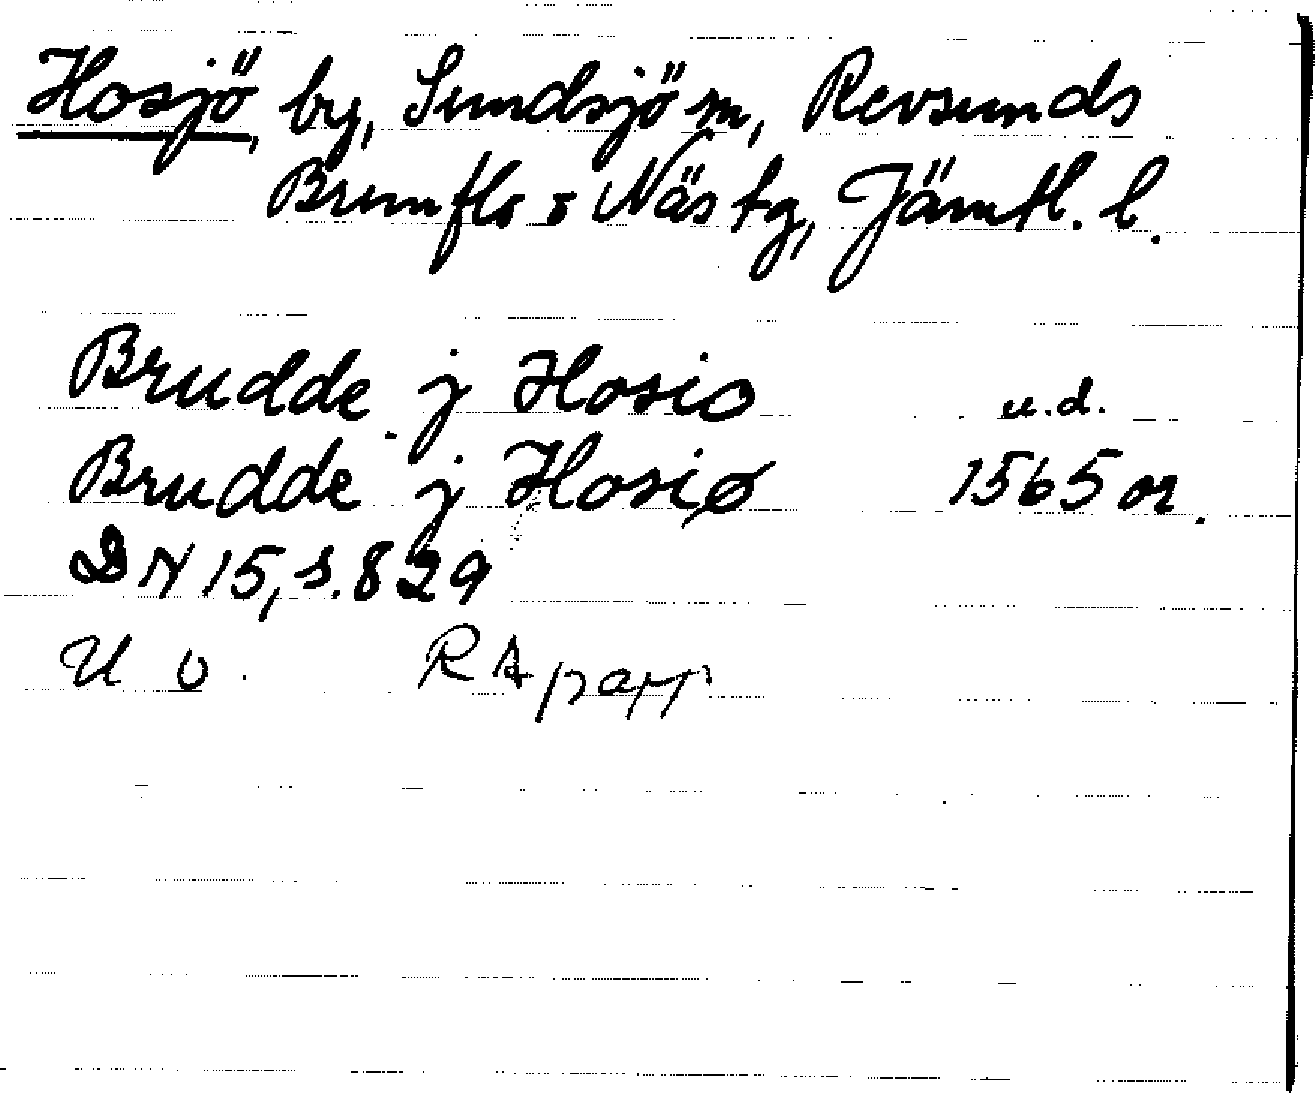 Hosjö, by, Sundsjö sn, Revsunds
Brunflo o Näs tg, Jämtl. l.
Brudde j Hosio u.d.
Brudde j Hosiø 1565 or.
DN 15, s. 829
U o. RApapp